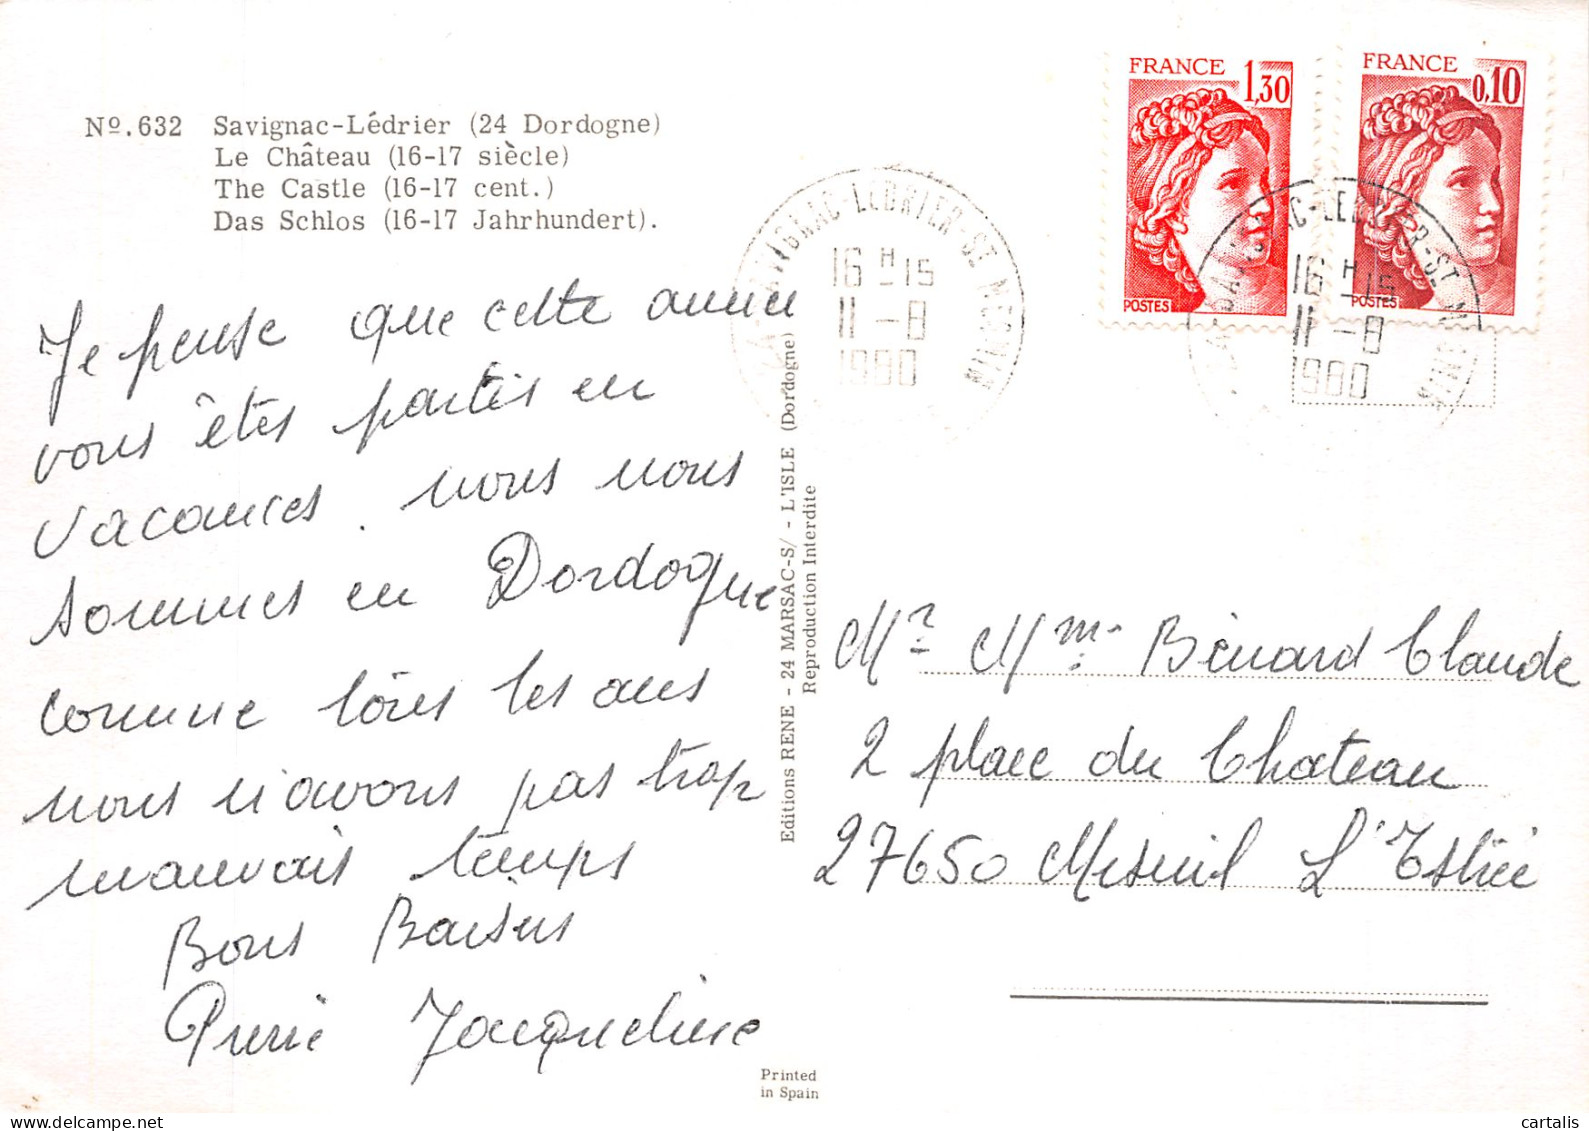 Nº.632 Savignac-Lédrier (24 Dordogne)
Le Château (16-17 siècle)
The Castle (16-17 cent.)
Das Schlos (16-17 Jahrhundert).
FRANCE 1,30
POSTES
FRANCE 0,10
POSTES
24 SAVIGNAC-LEDRIER-ST MESMIN
16 H 15
11 -8
1980
24 SAVIGNAC-LEDRIER-ST MESMIN
16 H 15
11 -8
1980
Je pense que cette année
vous êtes partis en
vacances. nous nous
sommes en Dordogne
comme tous les ans
nous n'avons pas trop
mauvais temps
Bons Baisers
Pierre Jacqueline
Editions RENE - 24 MARSAC-S/ - L'ISLE (Dordogne)
Reproduction Interdite
Mr Mme Bénard Claude
2 place du Chateau
27650 Mesnil L'Estrée
Printed
in Spain
cartalis